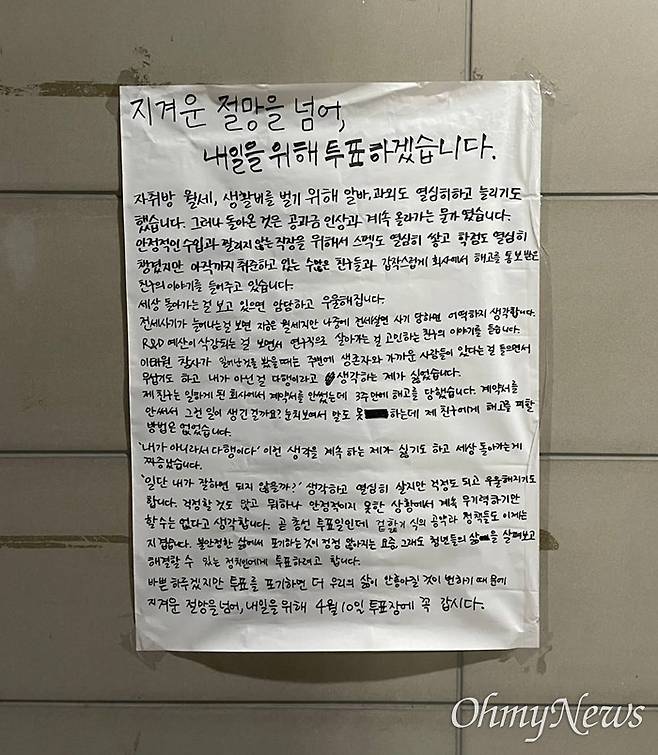 지겨운 절망을 넘어,
내일을 위해 투표하겠습니다.
자취방 월세, 생활비를 벌기 위해 알바, 과외도 열심히하고 늘리기도
했습니다. 그러나 돌아온 것은 공과금 인상과 계속 올라가는 물가 였습니다.
안정적인 수입과 짤리지 않는 직장을 위해서 스펙도 열심히 쌓고 학점도 열심히
챙겼지만 아직까지 취준하고 있는 수많은 친구들과 갑작스럽게 회사에서 해고를 통보받은
친구의 이야기를 들어주고 있습니다.
세상 돌아가는 걸 보고 있으면 암담하고 우울해집니다.
전세사기가 늘어나는걸 보면 지금은 월세지만 나중에 전세살면 사기 당하면 어떡하지 생각합니다.
R&D 예산이 삭감되는 걸 보면서 연구직으로 살아가는 걸 고민하는 친구의 이야기를 듣습니다.
이태원 참사가 일어나는걸 봤을때는 주변에 생존자와 가까운 사람들이 있다는 걸 들으면서
무섭기도 하고 내가 아닌걸 다행이라고 생각하는 제가 싫었습니다.
제 친구는 일하게 된 회사에서 계약서를 안썼는데 3주만에 해고를 당했습니다. 계약서를
안써서 그런 일이 생긴 걸까요? 눈치보여서 말도 못 하는데 제 친구에게 해고를 피할
방법은 없었습니다.
'내가 아니라서 다행이다' 이런 생각을 계속 하는 제가 싫기도 하고 세상 돌아가는게
짜증났습니다.
'일단 내가 잘하면 되지 않을까?' 생각하고 열심히 살지만 걱정도 되고 우울해지기도
합니다. 걱정할 것도 많고 뭐하나 안정적이지 못한 상황에서 계속 무기력하기만
할수는 없다고 생각합니다. 곧 총선 투표일인데 겉핥기 식의 공약과 정책들도 이제는
지겹습니다. 불안정한 삶에서 포기하는것이 점점 많아지는 요즘, 그래도 청년들의 삶을 살펴보고
해결할 수 있는 정치인에게 투표하려고 합니다.
바쁜 하루겠지만 투표를 포기하면 더 우리의 삶이 안좋아질 것이 뻔하기 때문에
지겨운 절망을 넘어, 내일을 위해 4월 10일 투표장에 꼭 갑시다.
OhmyNews